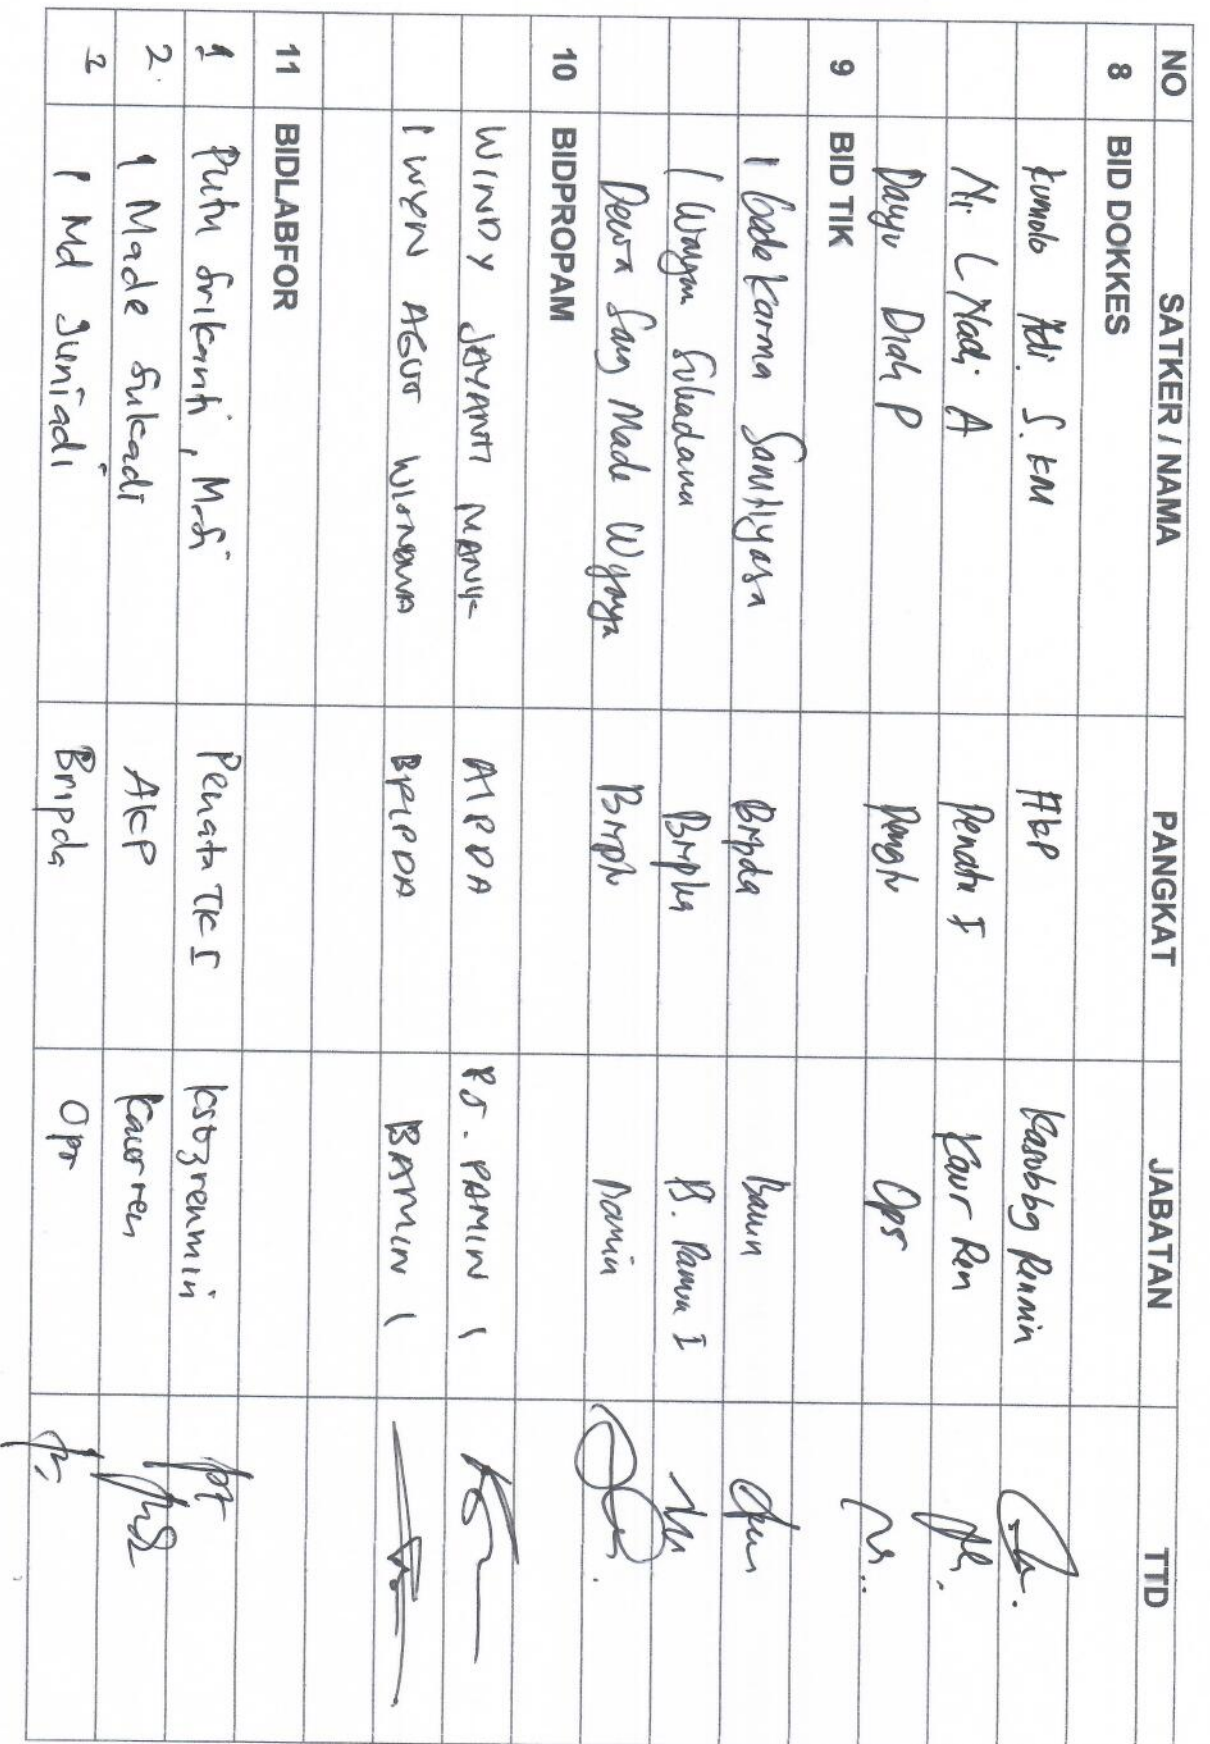 NO SATKER / NAMA PANGKAT JABATAN TTD
8 BID DOKKES
Kumolo Adi. S. KM AKP Kasubbg Renmin
Ni L Nadi A Penata I Kaur Ren
Dayu Diah P Pengtr Ops
9 BID TIK
I Gede Karma Sanityasa Bripda Bamin
I Wayan Subadana Bripka I
Dewa Sang Made Wijaya Bamin
10 BIDPROPAM
WINDY JAYANTI MANIK AIPDA PS. PAMIN 1
I WYEN AGUS BRIPDA BAMIN 1
11 BIDLABFOR
1 Putu Srikanti, M.Si Penata TK I Ksbgrenmin
2. I Made Sukadi AKP Kaurren
3 I Md Juniadi Bripda Opr